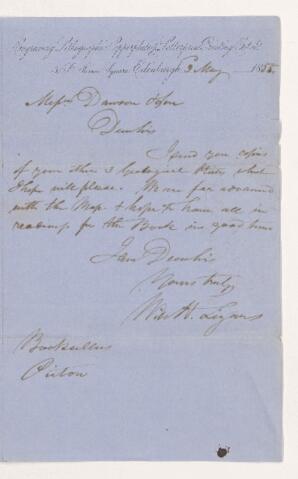 Engraving, Lithographic, Copperplate & Letterpress Printing
St. James Square, Edinburgh 3 May 1855
Messrs Dawson & Son
Dear Sirs
I send you copies
of your other 3 Geological Plates which
I hope will please. We are far advanced
with the Map & hope to have all in
readiness for the Book in good time
I am Dear Sirs
Yours truly
Wm H. Lizars
Booksellers
Pictou